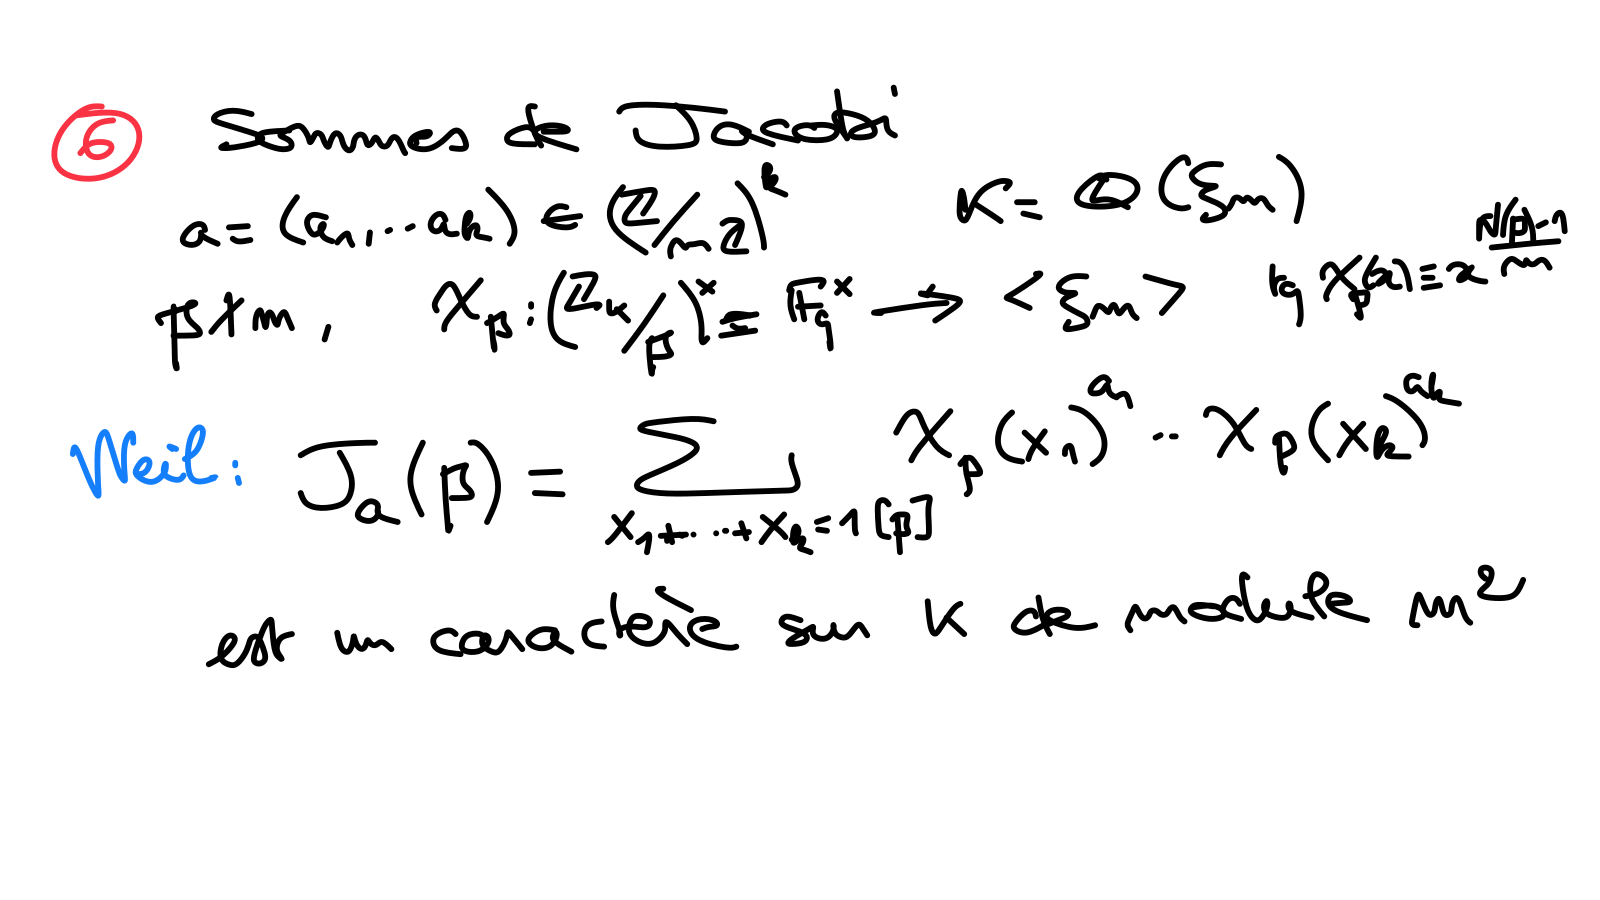 ⑥ Sommes de Jacobi
a = (a₁, ·· aₖ) ∈ (ℤ/mℤ)ᵏ K = ℚ(ξₘ)
𝔭 ∤ m, χ_𝔭 : (ℤ_K/𝔭)^× ≅ F_q^× → <ξₘ> tq χ_𝔭(x) ≡ x^{(N(𝔭)-1)/m}
Weil: J_a(𝔭) = Σ_{x₁+···+xₖ=1 [𝔭]} χ_𝔭(x₁)^{a₁} ·· χ_𝔭(xₖ)^{aₖ}
est un caractère sur K de module m²